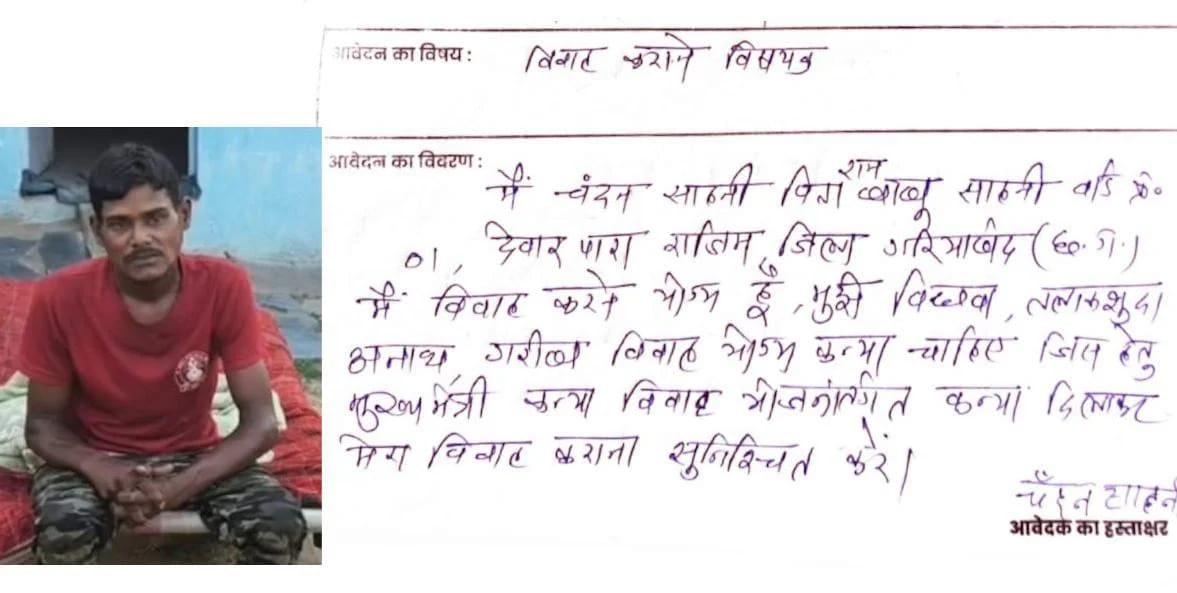 आवेदन का विषय : विवाह कराने विषयक
आवेदन का विवरण :
राम
मैं चंदन साहनी पिता बाबू साहनी वार्ड क्र॰
01, देवार पारा राजिम, जिला गरियाबंद (छ.ग.)
मैं विवाह करने योग्य हूँ, मुझे विधवा, तलाकशुदा
अनाथ, गरीब विवाह योग्य कन्या चाहिए जिस हेतु
मुख्यमंत्री कन्या विवाह योजनांतर्गत कन्या दिलाकर
मेरा विवाह कराना सुनिश्चित करें।
चंदन साहनी
आवेदक का हस्ताक्षर